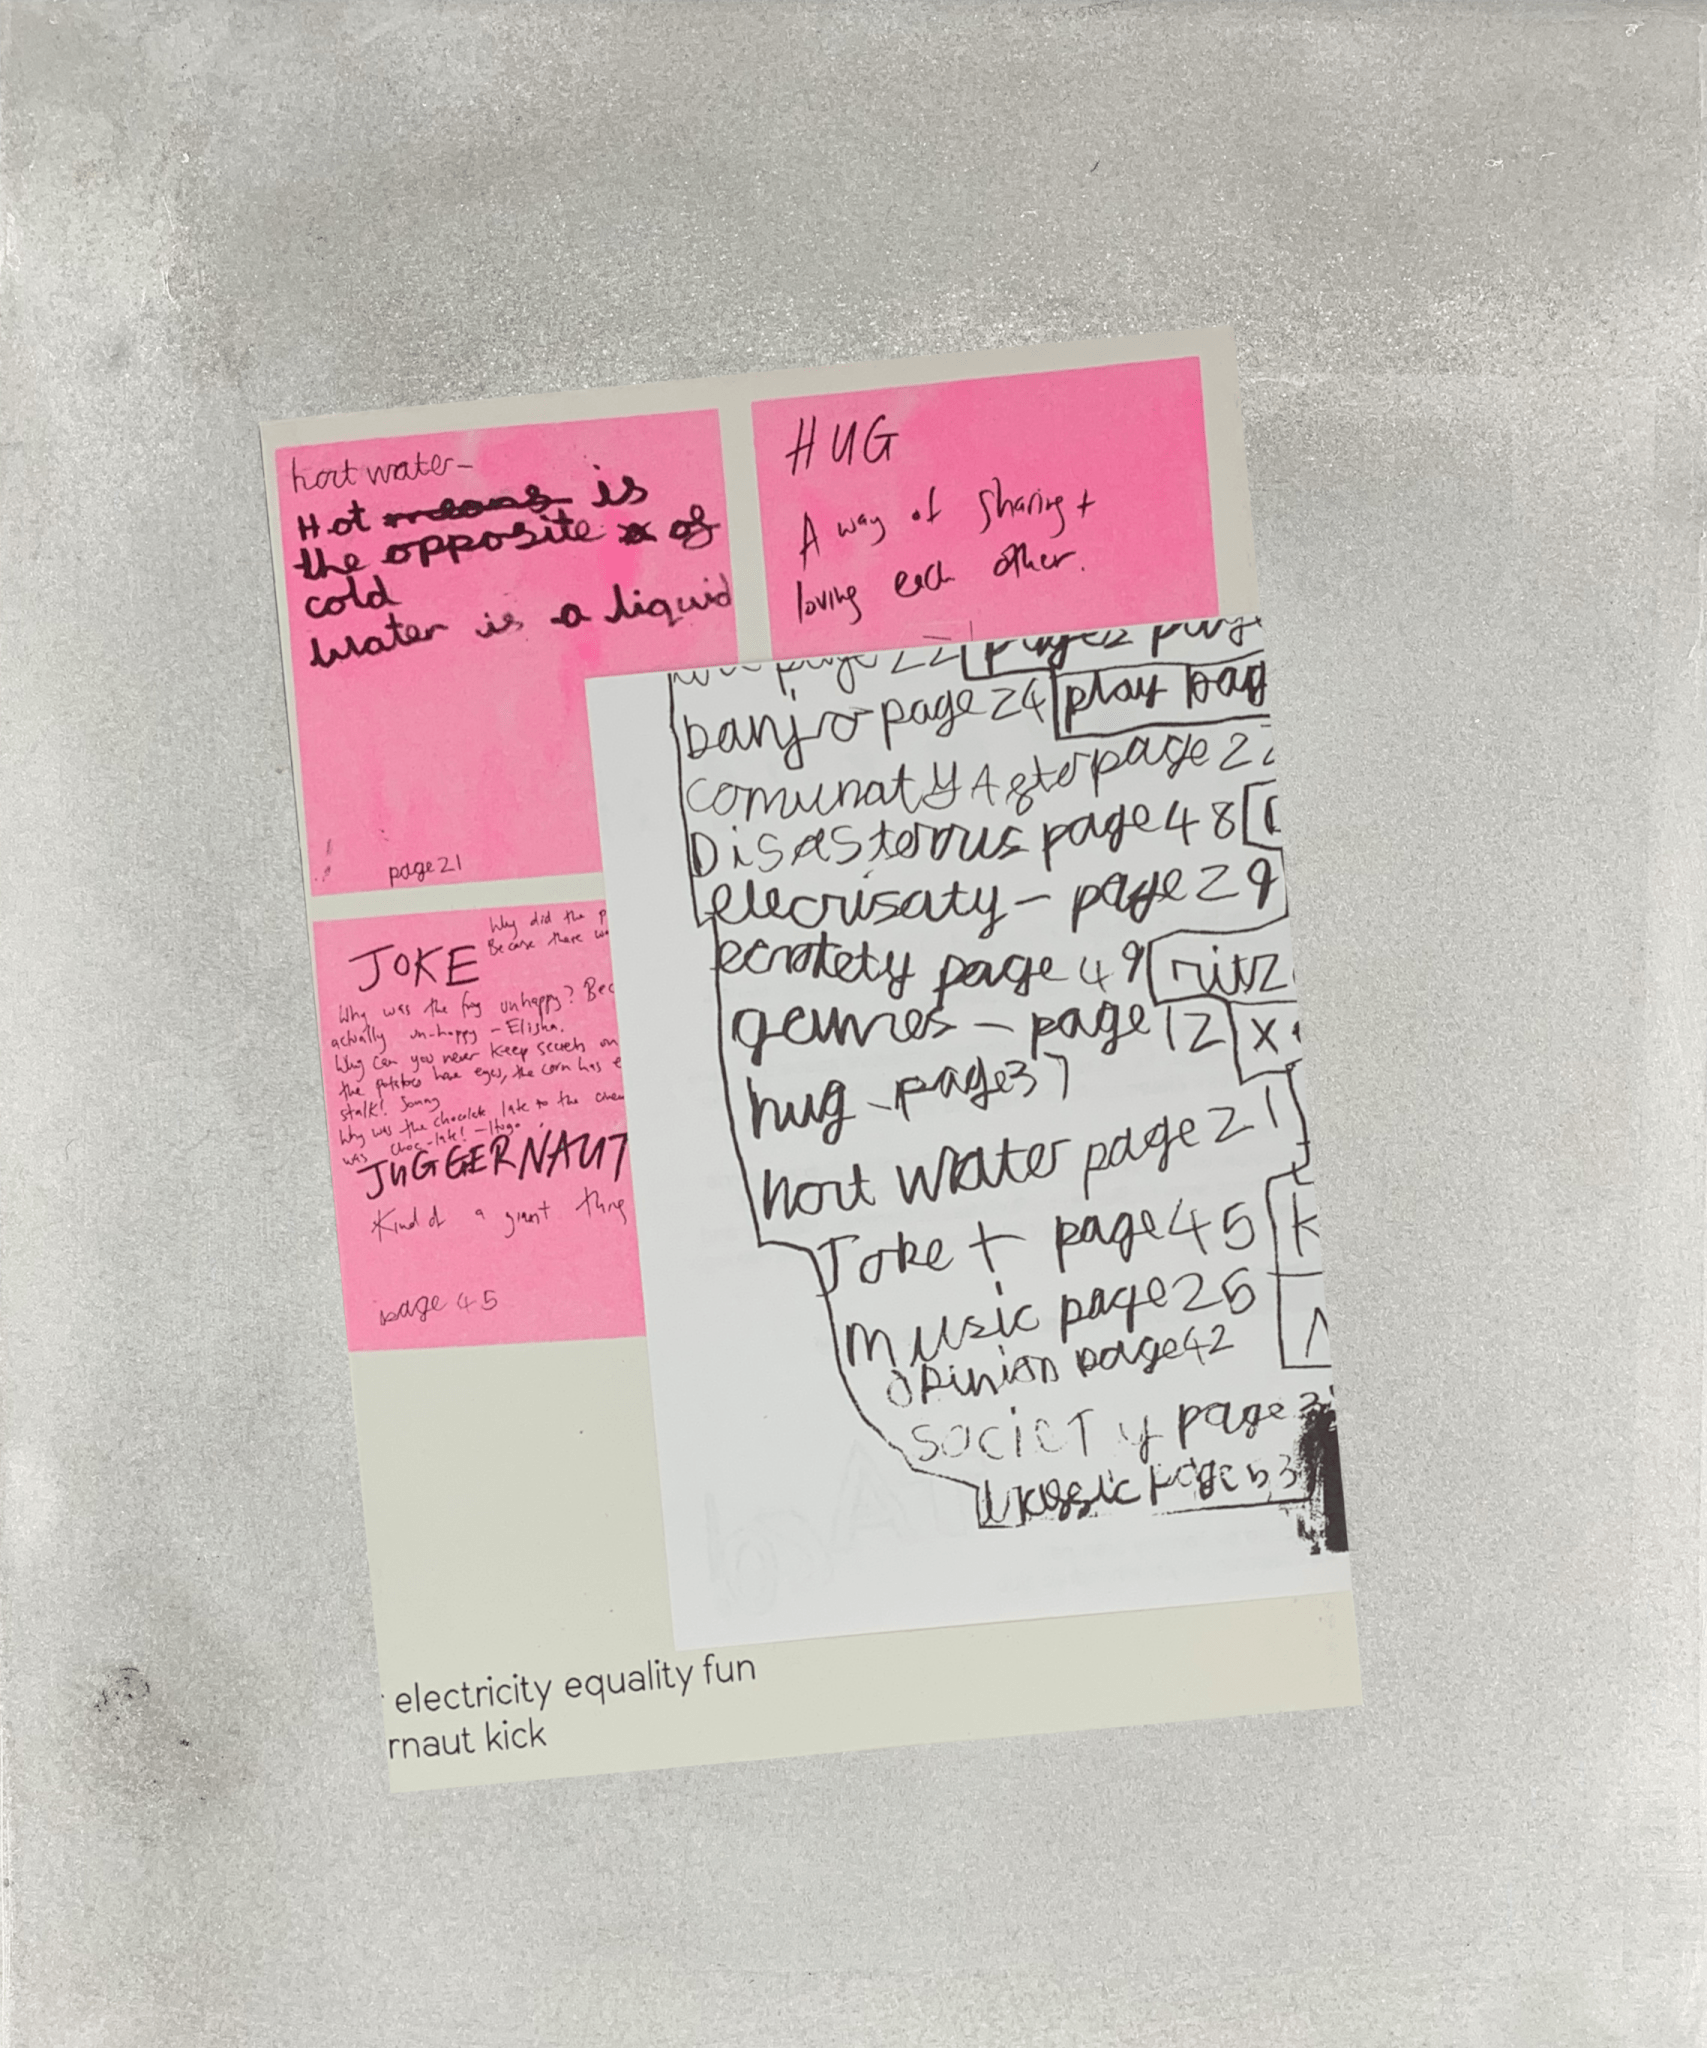 hort water-
Hot means is
the opposite of
cold
Water is a liquid
page 21
HUG
A way of sharing +
loving each other.
JOKE
Why did the
Because there
Why was the frog unhappy?
actually un-happy - Elisha.
Why can you never keep secrets on
the potatoes have eyes, the corn has
stalk! Sonny
Why was the chocolate late to the
was choc-late! - Hugo
JUGGERNAUT
Kind of a giant thing
page 45
page 22
banjo page 24 play
comunaty A page
DiSASterous page 48
elecrisaty - page 29
page 49
page 12 x
hug - page 37
hort water page 21
Joke + page 45 k
music page 26
opinion page 42
SOCieTy page
page
electricity equality fun
rnaut kick